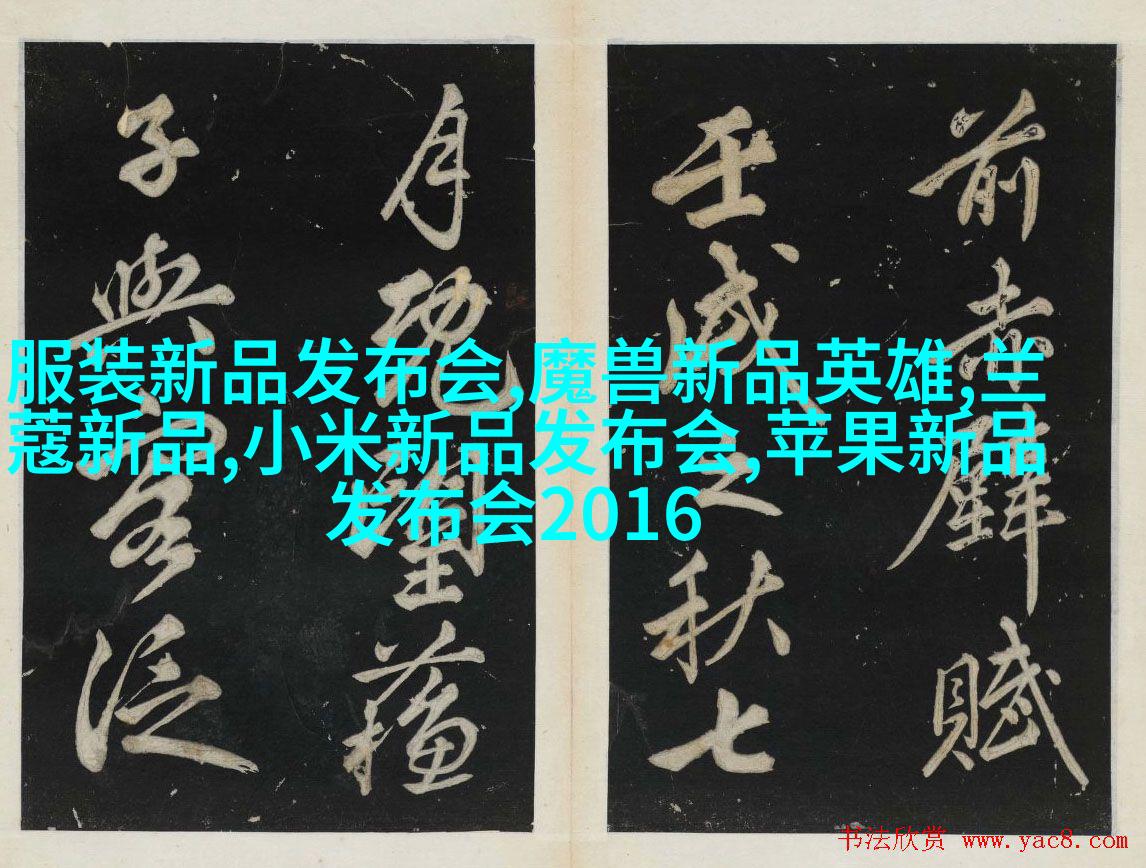 前赤壁賦
壬戌之秋七
月既望蘓
子與客泛
服装新品发布会,魔兽新品英雄,兰
蔻新品,小米新品发布会,苹果新品
发布会2016
书法欣赏 www.yac8.com